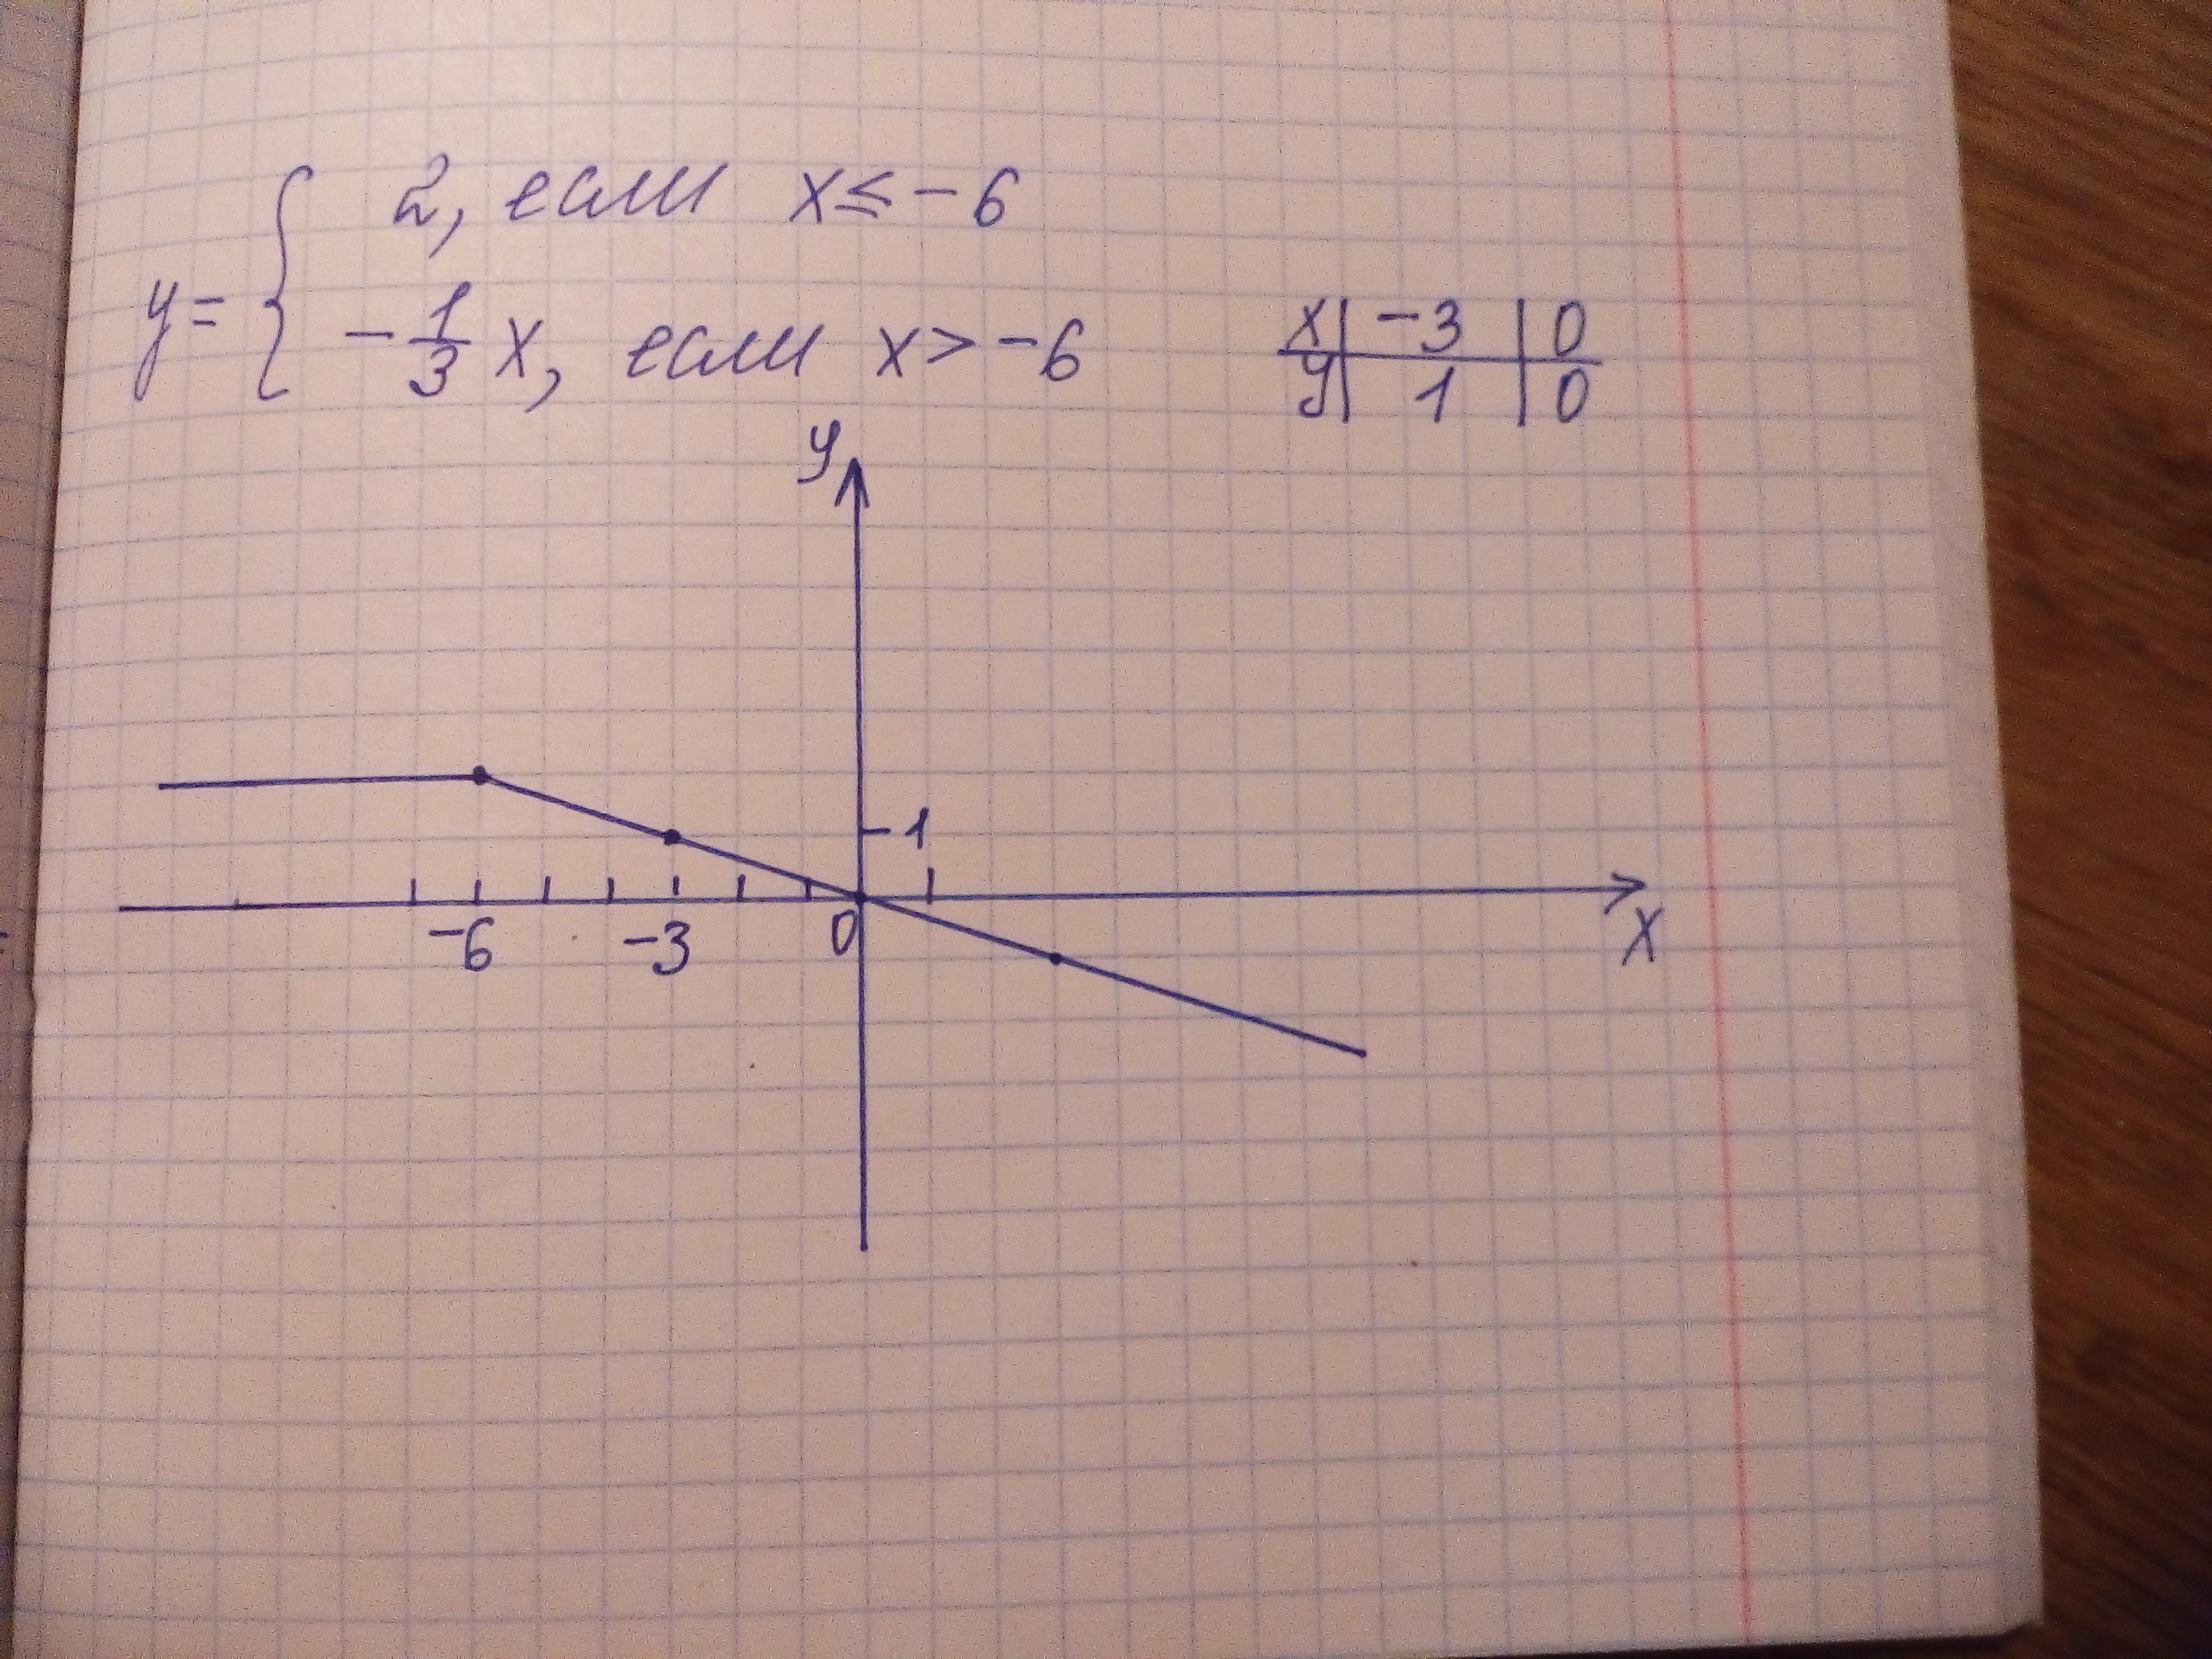 y = { 2, если x ≤ -6
-1/3 x, если x > -6
x | -3 | 0
y | 1 | 0
y
1
-6 -3 0
x